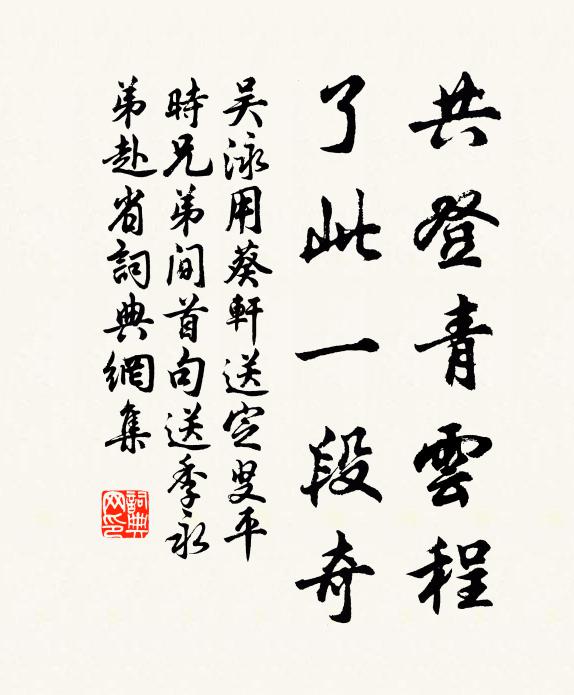 共登青雲程
了此一段奇
吳泳用葵軒送定叟平
時兄弟間首句送季永
弟赴省詞典網集
詞典網印